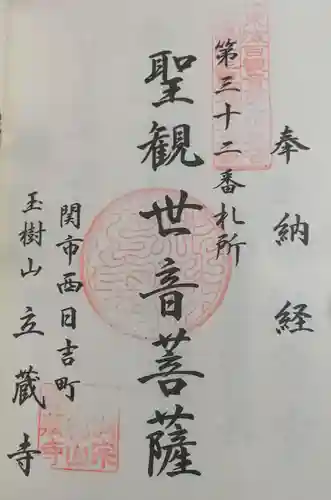 奉納経
第三十二番札所
聖観世音菩薩
関市西日吉町
玉樹山立蔵寺